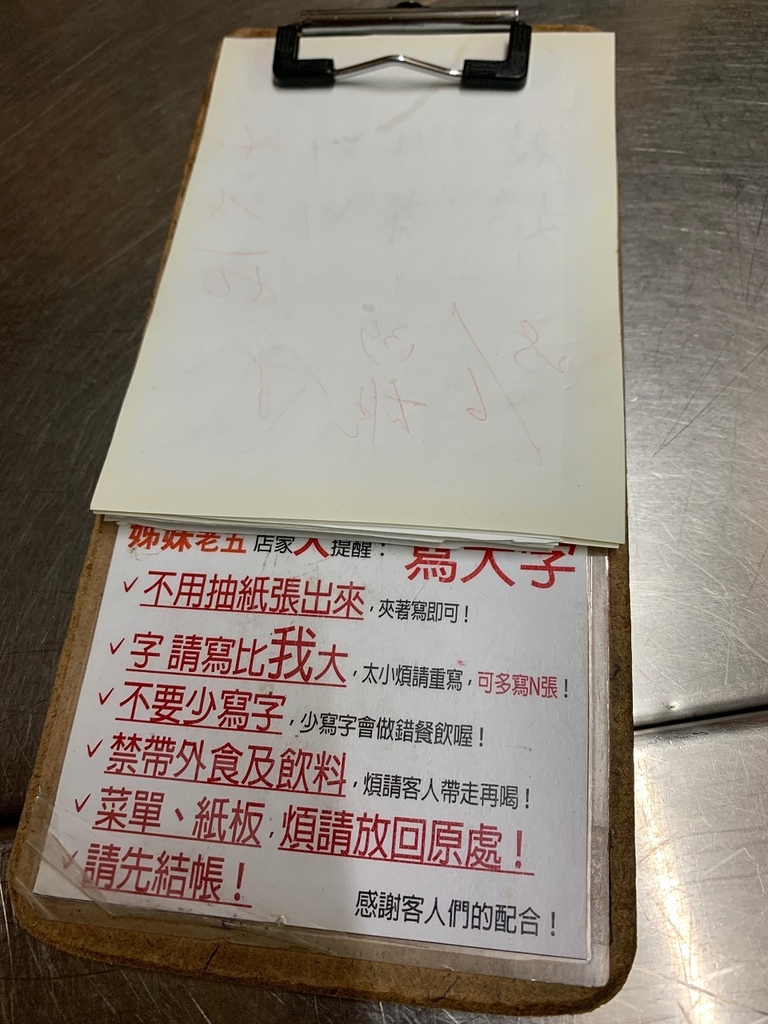 姊妹老五 店家人提醒： 寫大字
✓不用抽紙張出來，夾著寫即可！
✓字 請寫比我大，太小煩請重寫，可多寫N張！
✓不要少寫字，少寫字會做錯餐飲喔！
✓禁帶外食及飲料，煩請客人帶走再喝！
✓菜單、紙板，煩請放回原處！
✓請先結帳！
感謝客人們的配合！